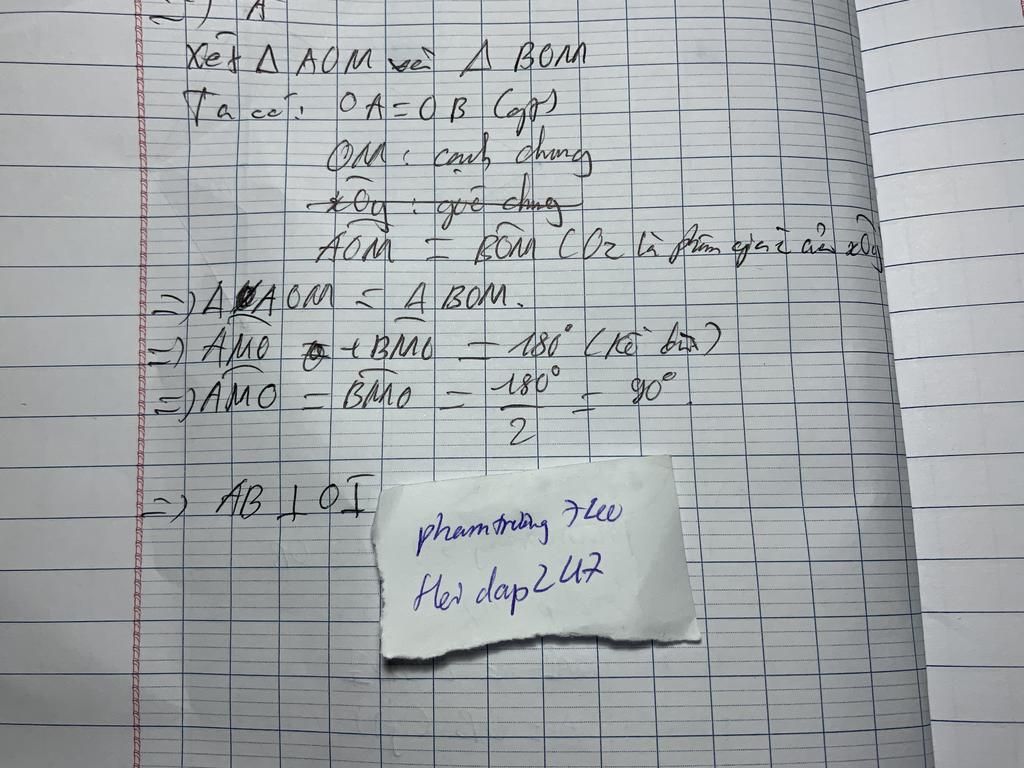 =) A
Xét Δ AOM và Δ BOM
Ta có: OA = OB (gt)
OM: cạnh chung
xOy: góc chung
AOM = BOM (Oz là phân giác của xOy
=) Δ AOM = Δ BOM.
=) AMO + BMO = 180° (kề bù)
=) AMO = BMO = 180°/2 = 90°
=) AB ⊥ OI
phamtrường
Hoi dap247